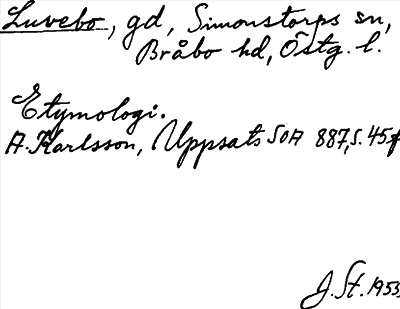 Luvebo, gd, Simonstorps sn,
Bråbo hd, Östg. l.
Etymologi.
A. Karlsson, Uppsats SOA 887, s. 45f
J. St. 1953